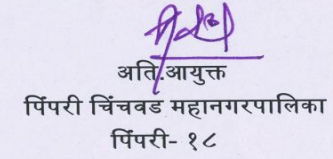 अति.आयुक्त
पिंपरी चिंचवड महानगरपालिका
पिंपरी- १८